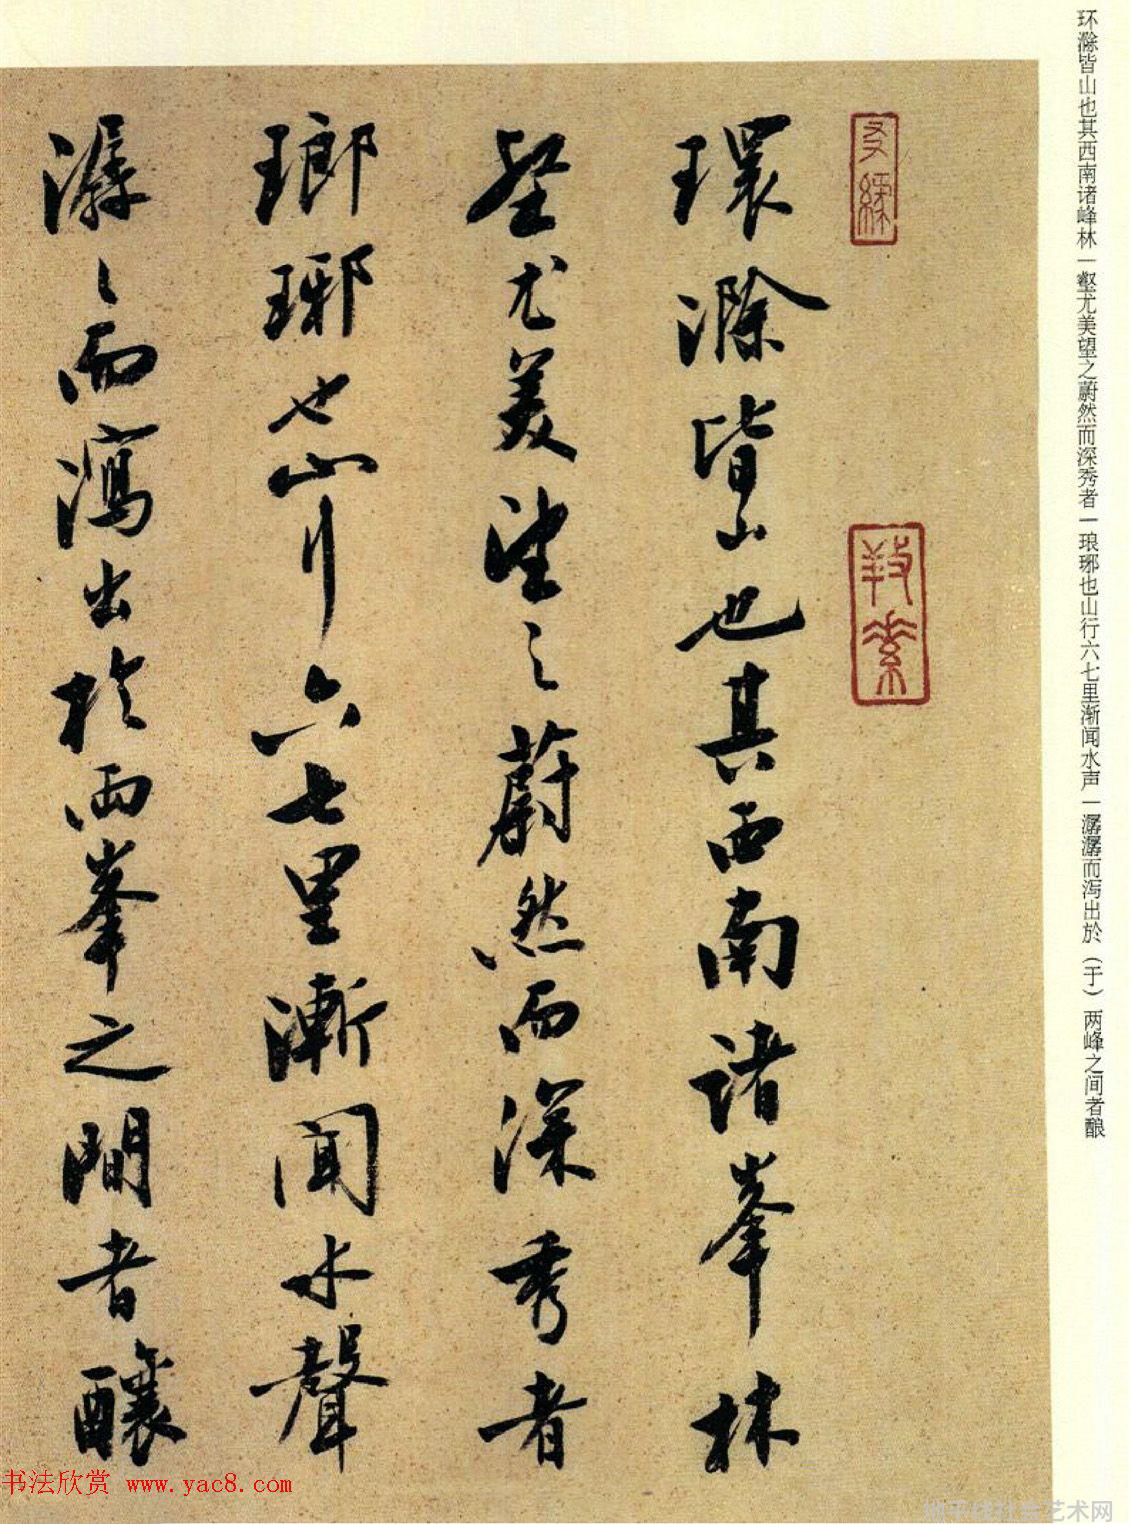 环滁皆山也其西南诸峰林一壑尤美望之蔚然而深秀者一琅琊也山行六七里渐闻水声一潺潺而泻出於（于）两峰之间者酿
環滁皆山也其西南諸峯林
壑尤美望之蔚然而深秀者
瑯琊也山行六七里漸聞水聲
潺〻而瀉出於兩峯之間者釀
书法欣赏 www.yac8.com
艺术网